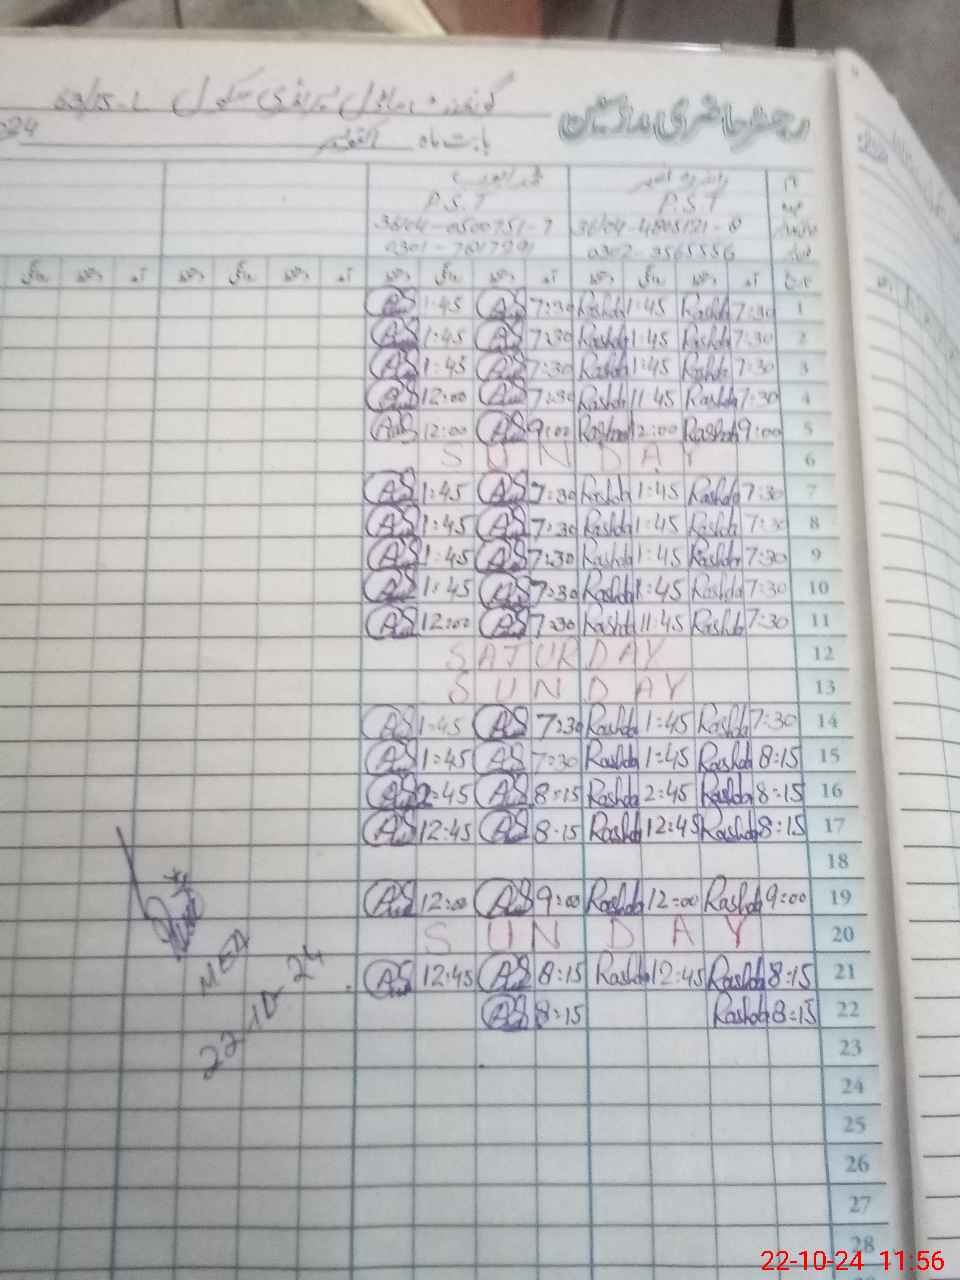 رجسٹر حاضری مدرسین
گورنمنٹ ماڈل پرائمری سکول 63/15-L
بابت ماہ اکتوبر 024
نام
عہدہ P.S.T P.S.T
36104-4805121-8 36104-0500751-7
0302-3565556
تاریخ آمد دستخط روانگی دستخط آمد دستخط روانگی دستخط آمد دستخط روانگی دستخط آمد دستخط روانگی
AS 1:45 AS 7:30 Rashda 1:45 Rashda 7:30 1
AS 1:45 AS 7:30 Rashda 1:45 Rashda 7:30 2
AS 1:45 AS 7:30 Rashda 1:45 Rashda 7:30 3
AS 12:00 AS 7:30 Rashda 11:45 Rashda 7:30 4
AS 12:00 AS 9:00 Rashda 12:00 Rashda 9:00 5
SUNDAY 6
AS 1:45 AS 7:30 Rashda 1:45 Rashda 7:30 7
AS 1:45 AS 7:30 Rashda 1:45 Rashda 7:30 8
AS 1:45 AS 7:30 Rashda 1:45 Rashda 7:30 9
AS 1:45 AS 7:30 Rashda 1:45 Rashda 7:30 10
AS 12:00 AS 7:30 Rashda 11:45 Rashda 7:30 11
SATURDAY 12
SUNDAY 13
AS 1:45 AS 7:30 Rashda 1:45 Rashda 7:30 14
AS 1:45 AS 7:30 Rashda 1:45 Rashda 8:15 15
AS 2:45 AS 8:15 Rashda 2:45 Rashda 8:15 16
AS 12:45 AS 8:15 Rashda 12:45 Rashda 8:15 17
18
AS 12:00 AS 9:00 Rashda 12:00 Rashda 9:00 19
SUNDAY 20
AS 12:45 AS 8:15 Rashda 12:45 Rashda 8:15 21
AS 8:15 Rashda 8:15 22
MEA
22-10-24
23
24
25
26
27
28
22-10-24 11:56